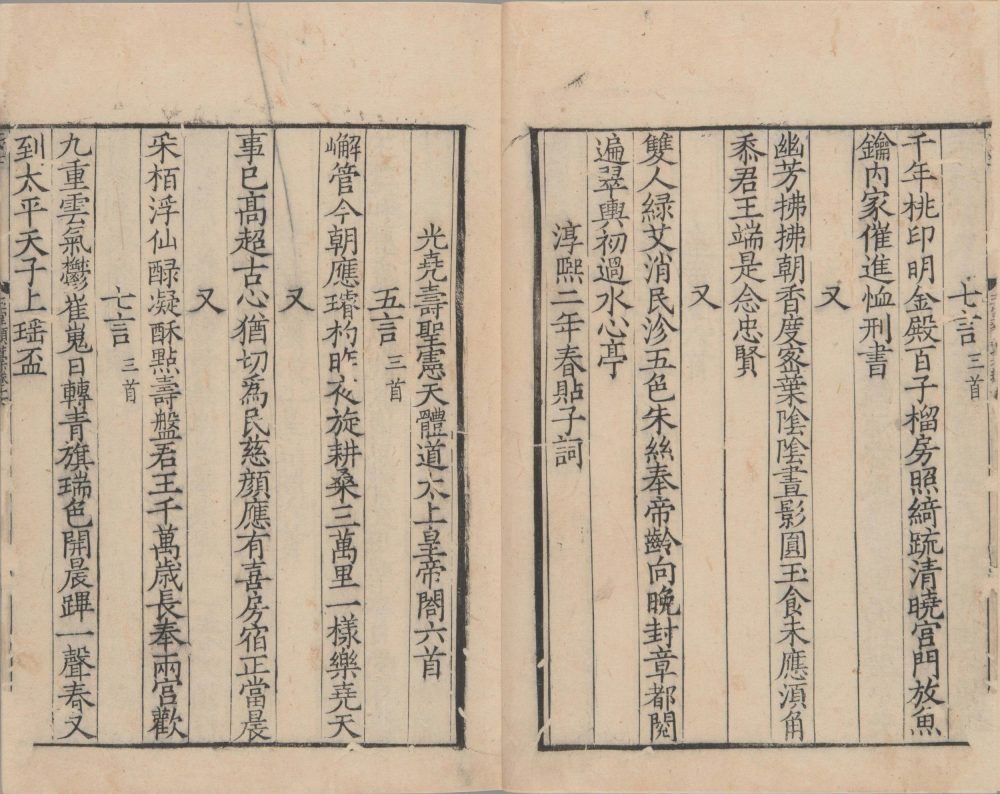 七言 三首
千年桃印明金殿百子榴房照綺疏清曉宫門放魚
鑰内家催進恤刑書
又
幽芳拂拂朝香度宻葉陰陰晝影圓玉食未應湏角
黍君王端是念忠賢
又
雙人緑艾消民沴五色朱絲奉帝齡向晚封章都閲
遍翠輿初過水心亭
淳熈二年春貼子詞
光堯壽聖憲天體道太上皇帝閤六首
五言 三首
嶰管今朝應璿杓昨夜旋耕桑三萬里一樣樂堯天
又
事已髙超古心猶切爲民慈顔應有喜房宿正當晨
又
采栢浮仙醁凝酥點壽盤君王千萬歳長奉兩宫歡
七言 三首
九重雲氣鬱崔嵬日轉青旗瑞色開晨蹕一聲春又
到太平天子上瑶盃